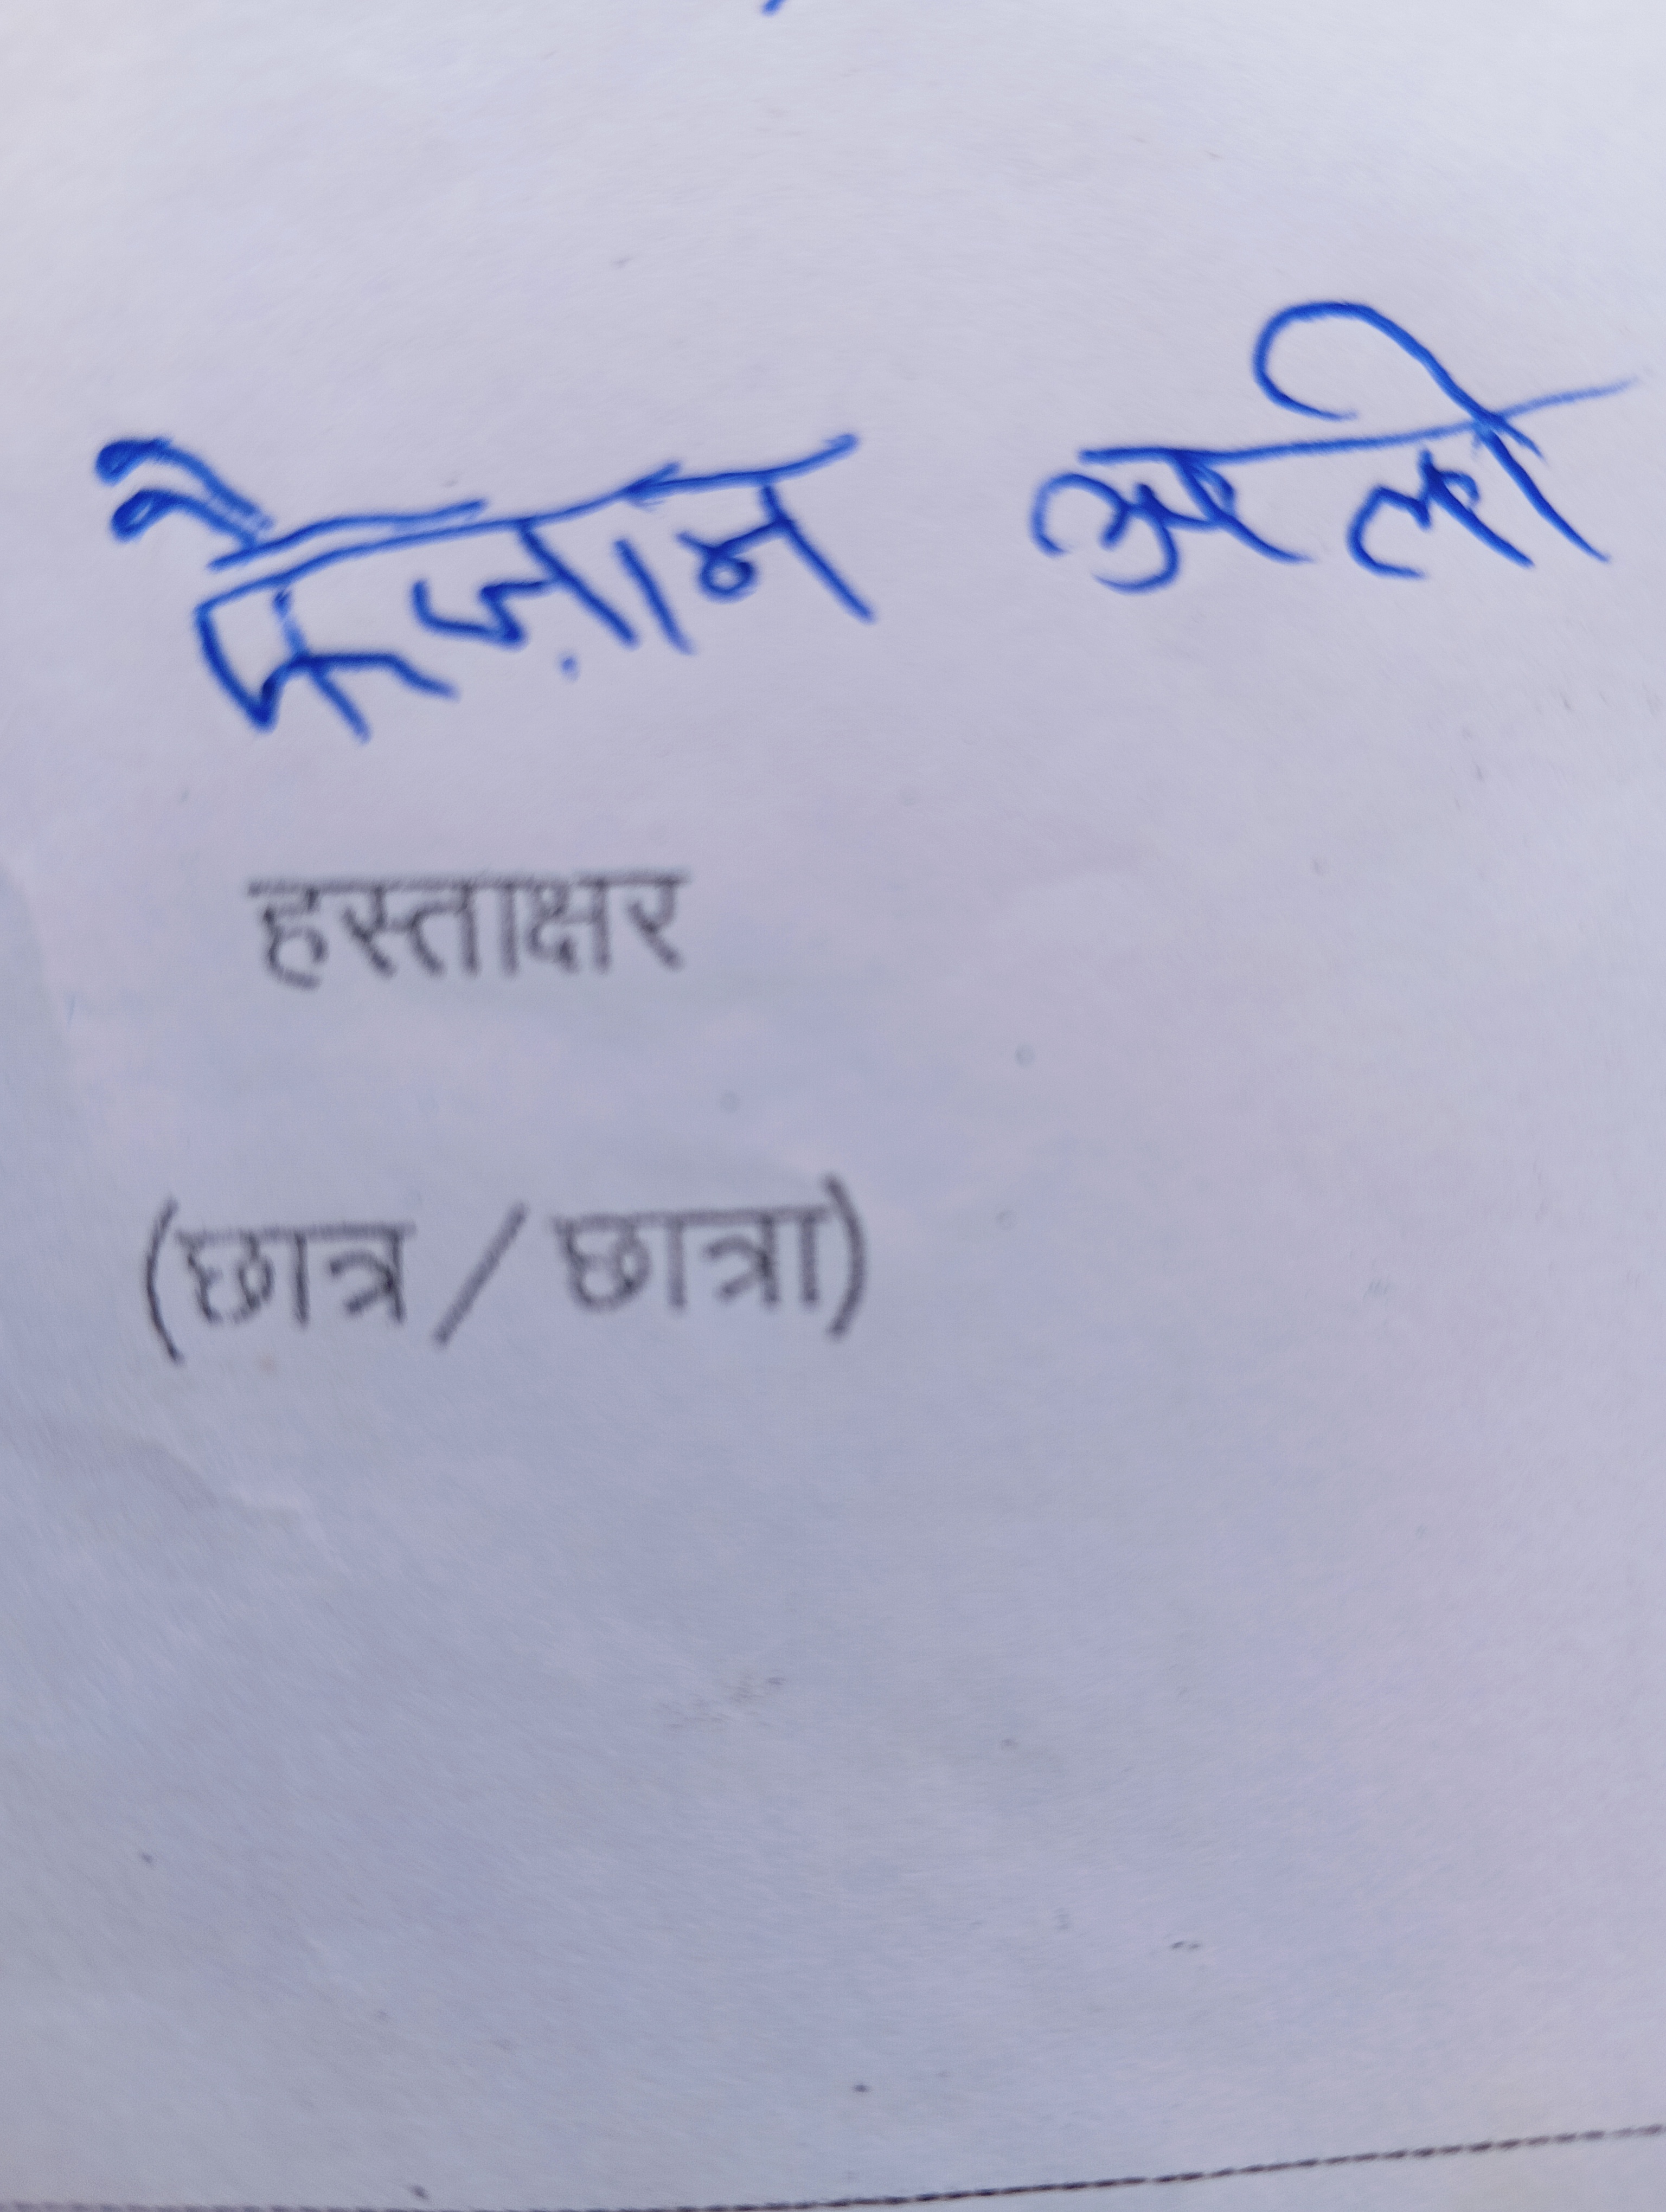 फैज़ान अली
हस्ताक्षर
(छात्र / छात्रा)